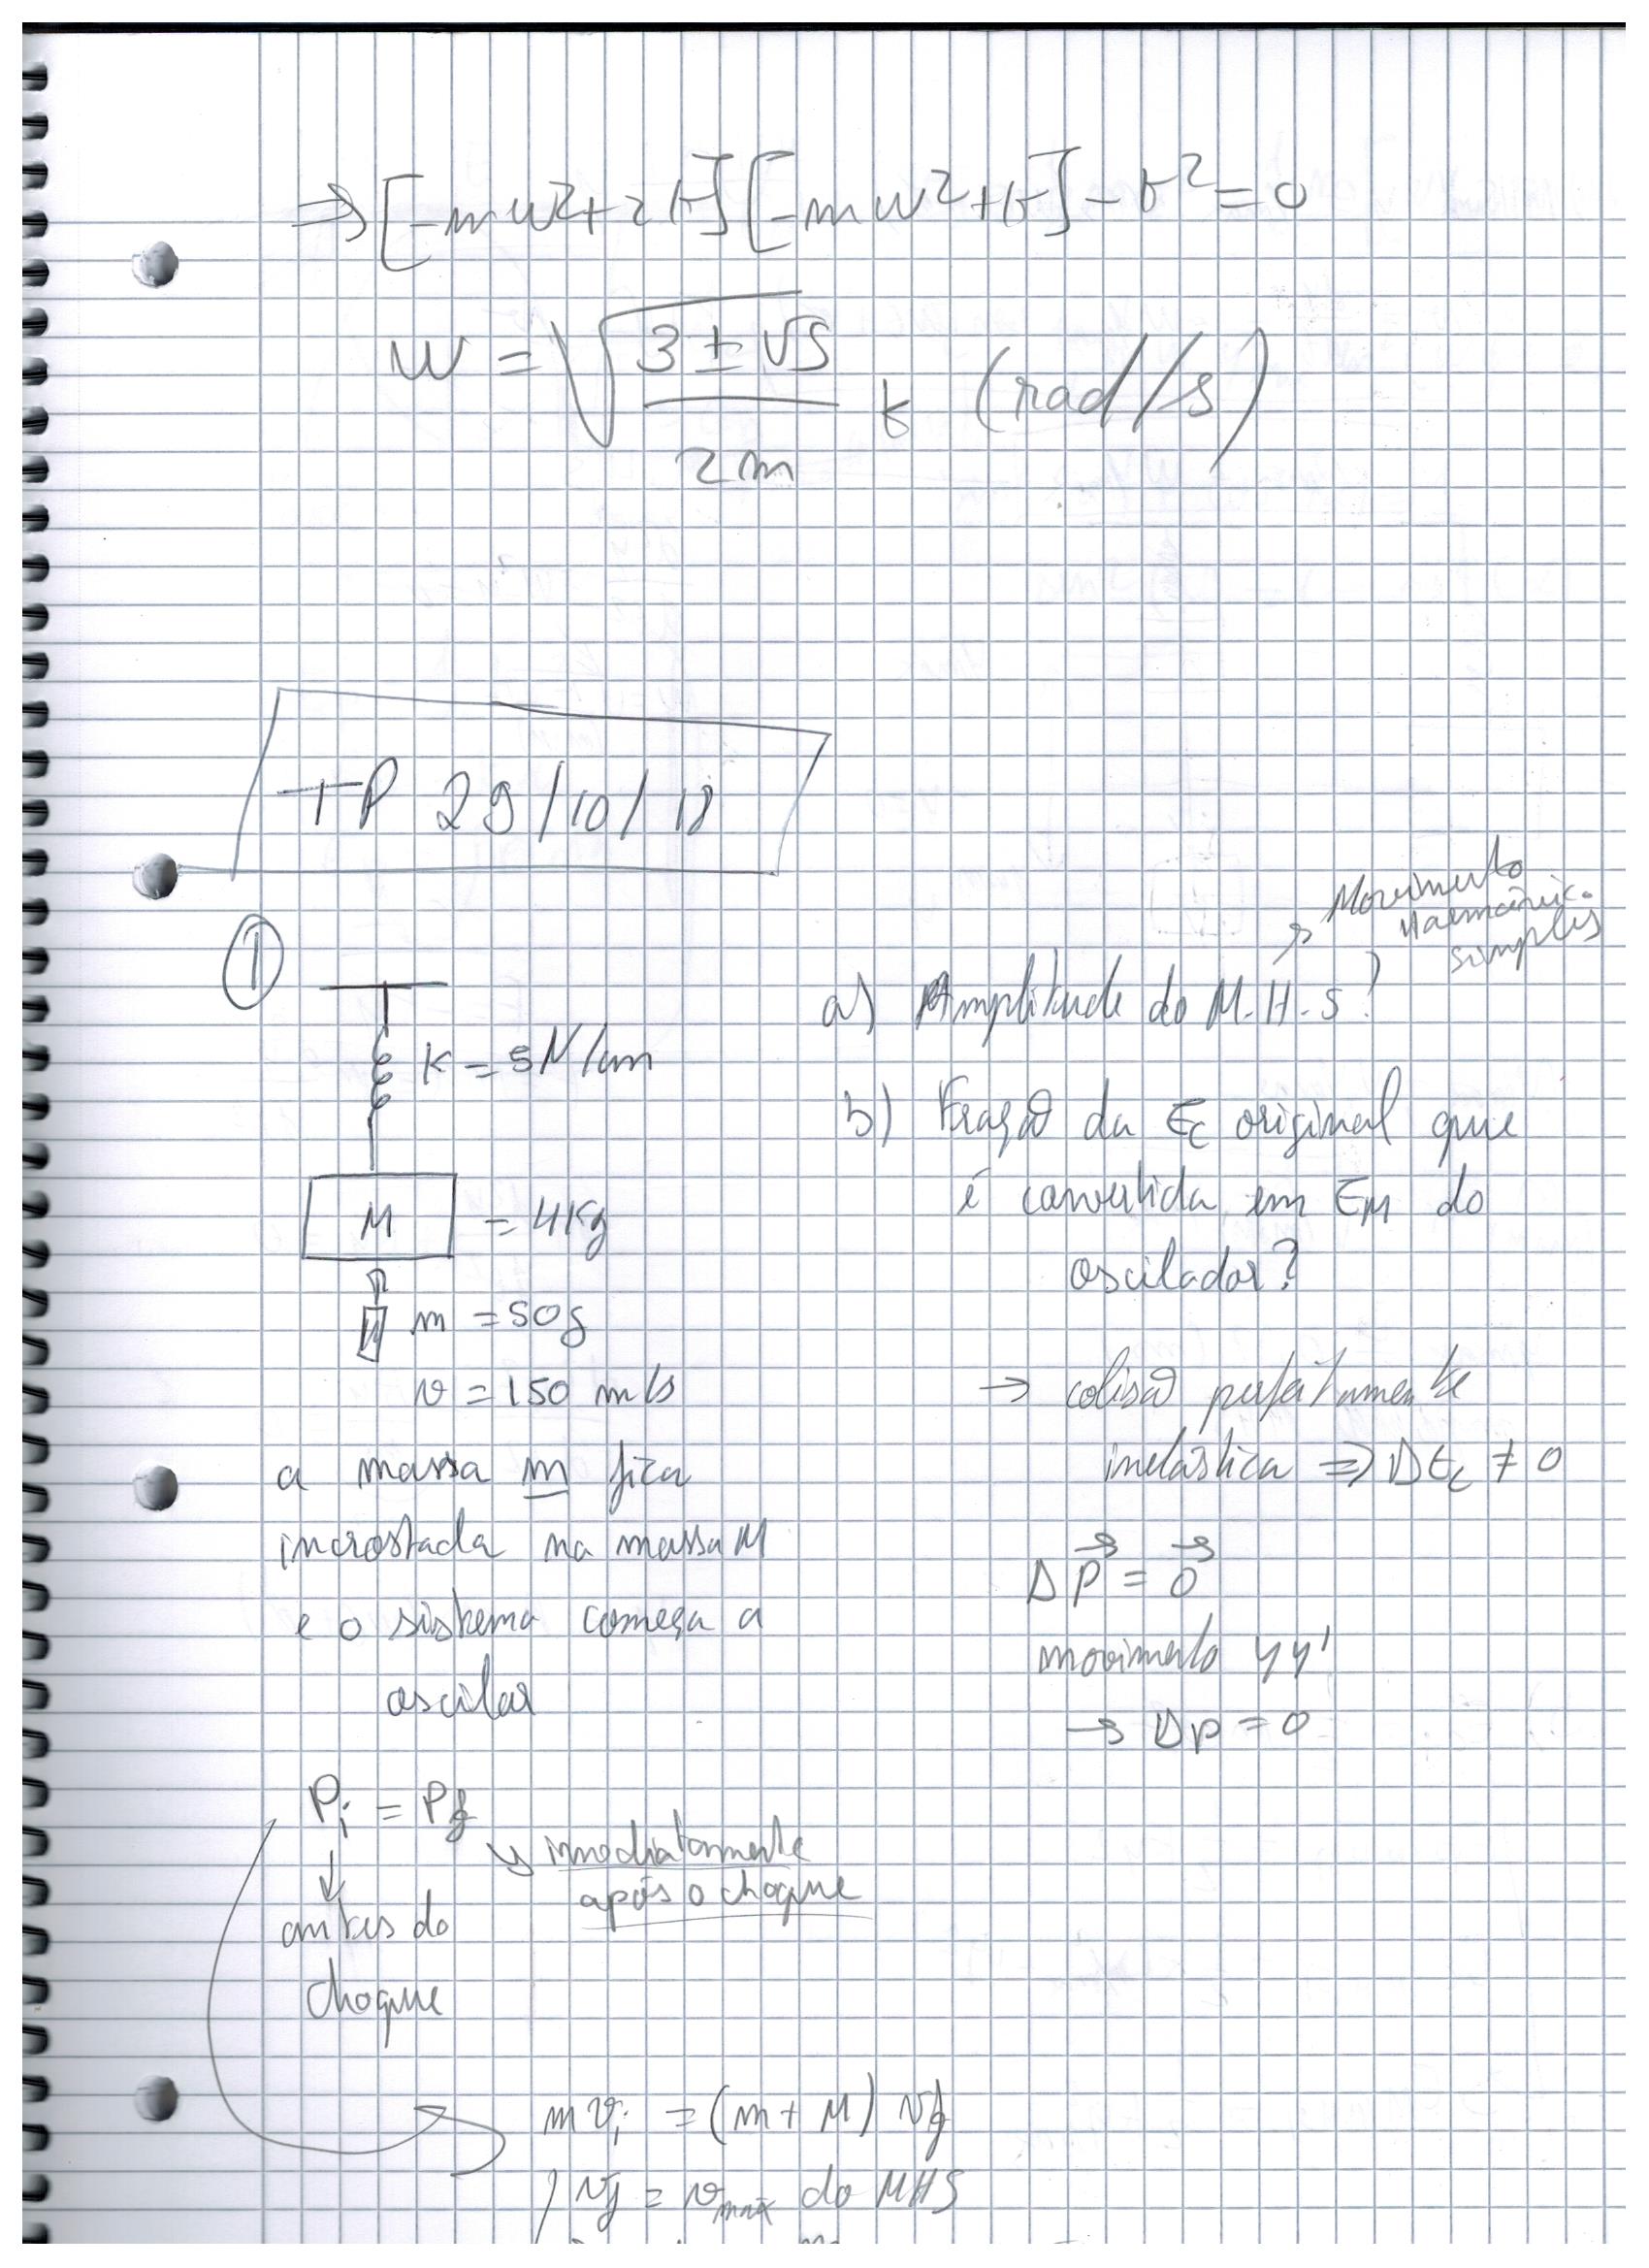 ⇒ [-mω²+2k] [-mω²+k] - k² = 0
ω = √((3 ± √5)/(2m) k) (rad/s)
TP 29/10/18
①
K = 5N/cm
M = 4Kg
m = 50g
v = 150 m/s
a massa m fica
incrostada na massa M
e o sistema começa a
oscilar
→ Movimento
Harmónico
Simples
a) Amplitude do M.H.S?
b) Fração da Ec original que
é convertida em EM do
oscilador?
→ colisão perfeitamente
inelástica ⇒ ΔEc ≠ 0
Δp⃗ = 0⃗
movimento yy'
→ Δp = 0
Pi = Pf
↓
antes do
choque
↘ imediatamente
após o choque
m vi = (m + M) vf
vf = vmáx do MHS